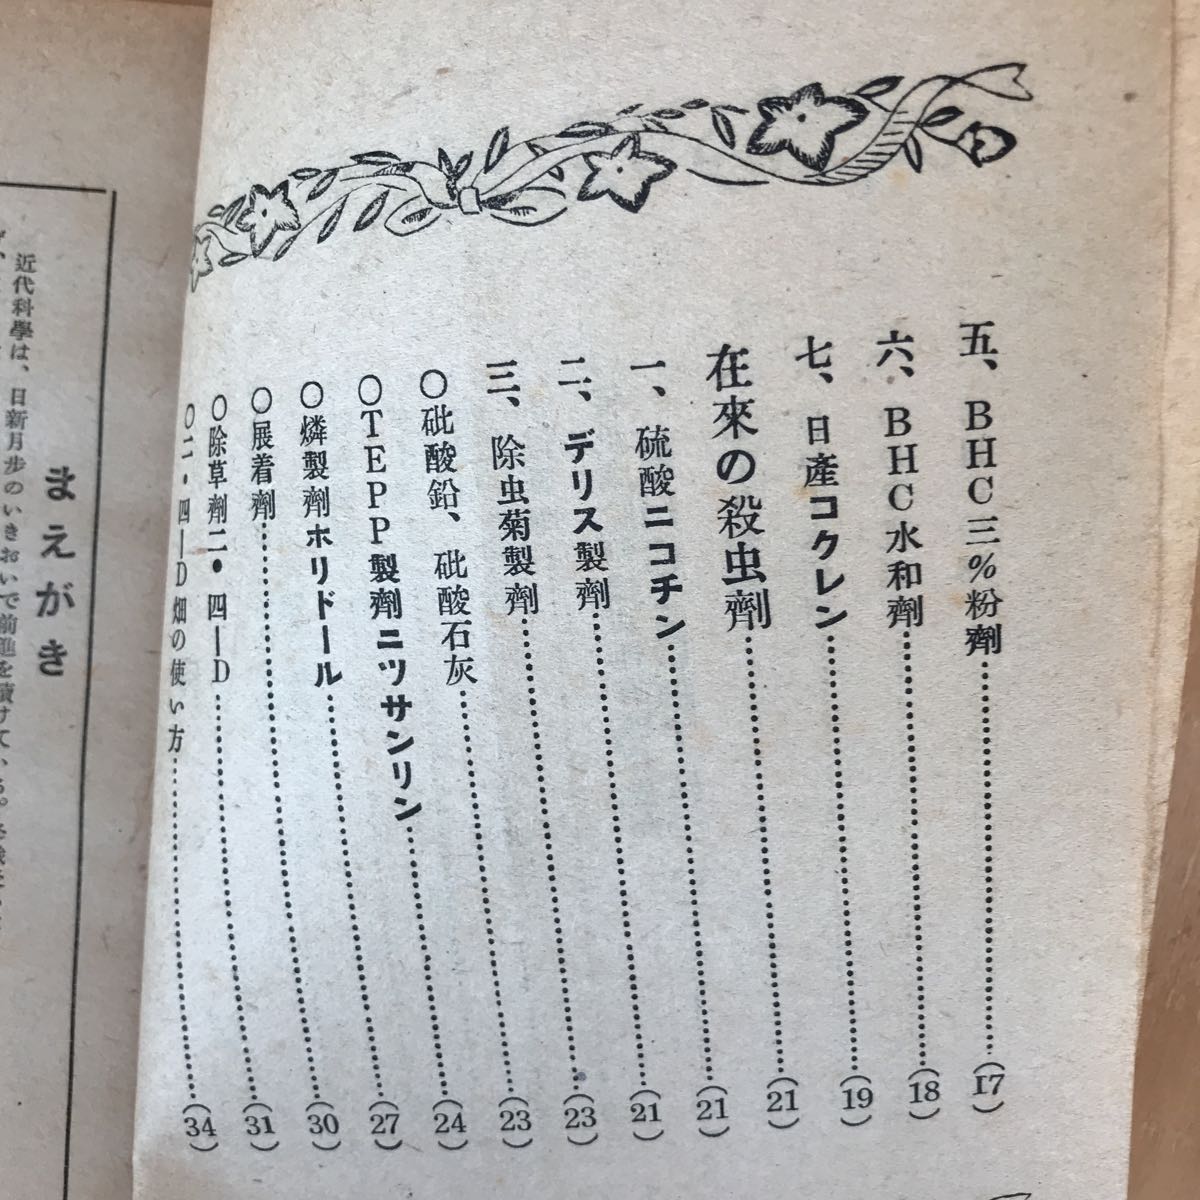 五、BHC三%粉劑……(17)
六、BHC水和劑……(18)
七、日產コクレン……(19)
在來の殺虫劑……(21)
一、硫酸ニコチン……(21)
二、デリス製劑……(21)
三、除虫菊製劑……(23)
○砒酸鉛、砒酸石灰……(23)
○TEPP製劑ニツサンリン……(24)
○燐製劑ホリドール……(27)
○展着劑……(30)
○除草劑二・四―D……(31)
○二・四―D畑の使い方……(34)
まえがき
近代科學は、日新月歩のいきおいで前進を續けて